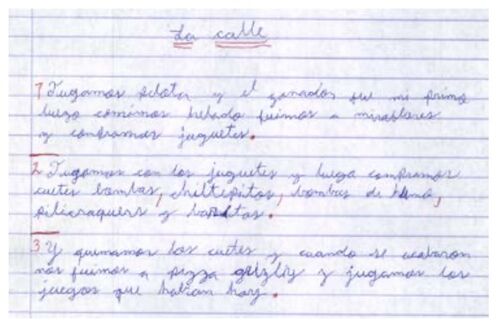 La calle
1 Jugamos pelota y el ganador fue mi primo
luego comimos helado fuimos a miraflores
y compramos juguetes.
2. Jugamos con los juguetes y luego compramos
cuetes bombas, chiltepitos, bombas de humo,
silvicaquers y
3. Y quemamos los cuetes y cuando se acabaron
nos fuimos a pizza grizly y jugamos los
juegos que habian hay.